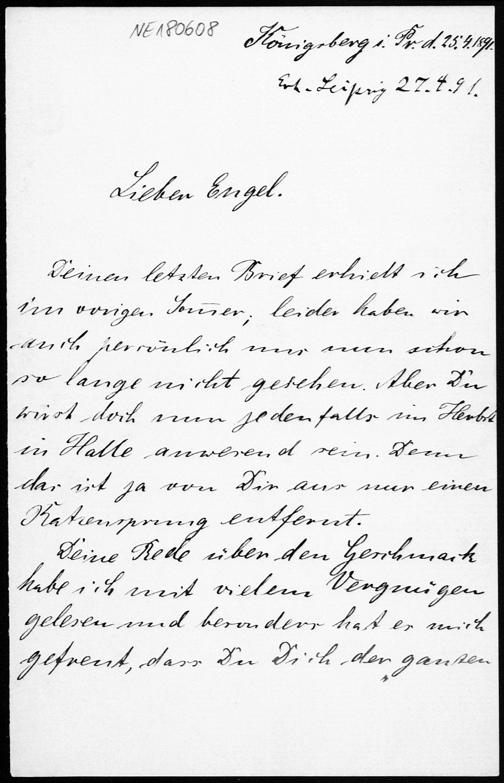 NE180608
Königsberg i. Pr. d. 25.4.1891.
Erh. Leipzig 27.4.91.
Lieber Engel.
Deinen letzten Brief erhielt ich
im vorigen Som̄er; leider haben wir
auch persönlich uns nun schon
so lange nicht gesehen. Aber Du
wirst doch nun jedenfalls im Herbst
in Halle anwesend sein. Denn
das ist ja von Dir aus nur einen
Katzensprung entfernt.
Deine Rede über den Geschmack
habe ich mit vielem Vergnügen
gelesen und besonders hat es mich
gefreut, dass Du Dich der „ganzen